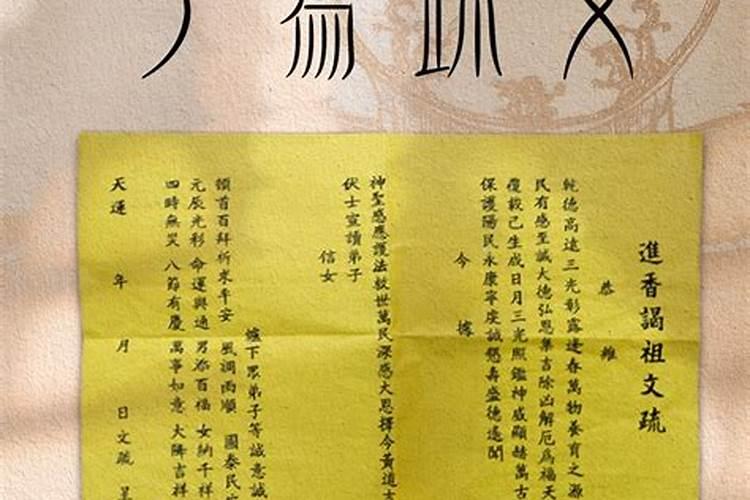 進香謁祖文疏
恭維
乾德高遠三光彰露逢春萬物養育之源
民有感至誠大德弘恩集吉除凶解厄為福天
覆載已生成日月三光照鑑神威顯赫萬古
保護陽民永康寧虔誠懇壽盛德遙聞
今據
神聖感應護法救世萬民深感大恩擇今黃道吉
伏士宣讀弟子
信女
爐下眾弟子等誠意誠
頓首百拜祈求平安 風調雨順 國泰民
元辰光彩 命運與通 男添百福 女納千祥
四時無災 八節有慶 萬事如意 大降吉祥
天運 年 月 日文疏 呈